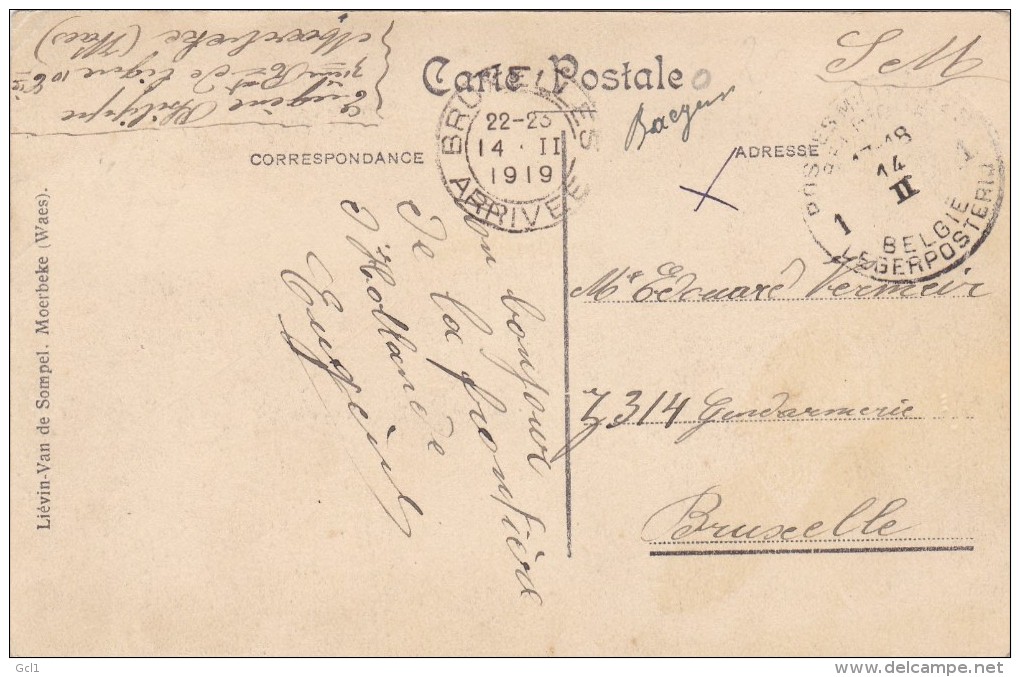 Eugène Philippe
3ième Rgt de Ligne 10 Cie
Moerbeke (Waes)
Carte Postale
S M
Baegun
CORRESPONDANCE
ADRESSE
BRUXELLES
22-23
14·II
1919
ARRIVEE
17-18
14
II
1 1
BELGIE
LEGERPOSTERIJ
Un bonjour
de la frontière
d'Hollande
Eugène
Mr Edouard Vermeir
7314 Gendarmerie
Bruxelle
Liévin-Van de Sompel. Moerbeke (Waes).
Gcl1
delcampe.net